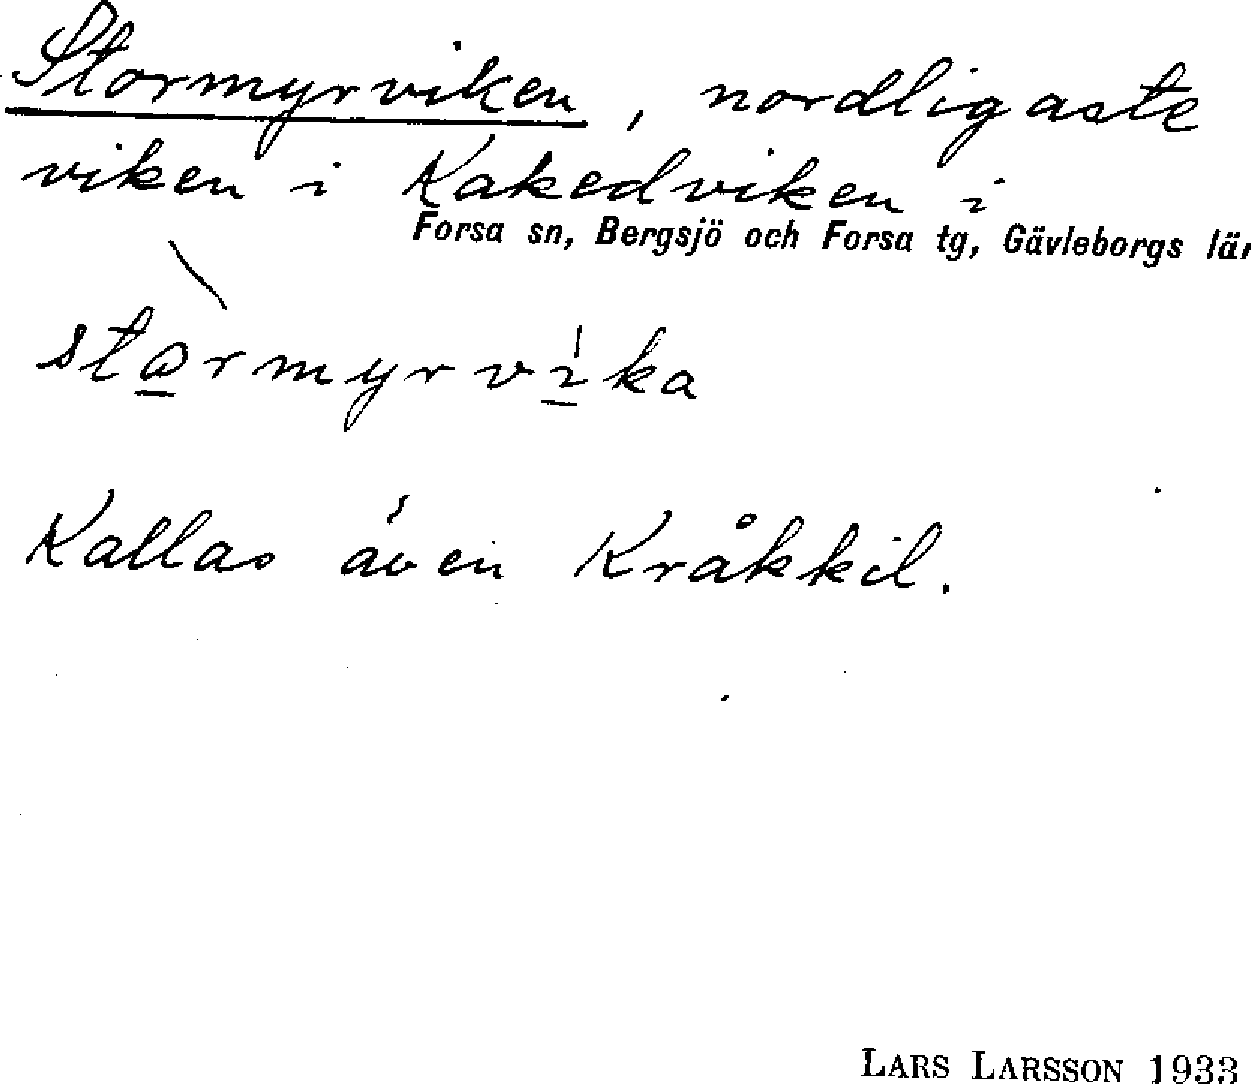 Stormyrviken, nordligaste
viken i Kakedviken i
Forsa sn, Bergsjö och Forsa tg, Gävleborgs län
stòrmyrvíka
Kallas även Kråkkil.
LARS LARSSON 1933